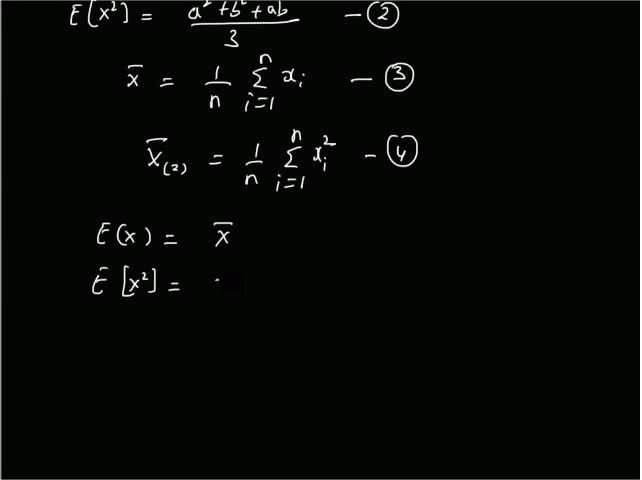 E[x²] = (a² + b² + ab)/3 — ②
x̄ = 1/n Σ_{i=1}^{n} x_i — ③
x̄_(2) = 1/n Σ_{i=1}^{n} x_i² — ④
E(x) = x̄
E[x²] =